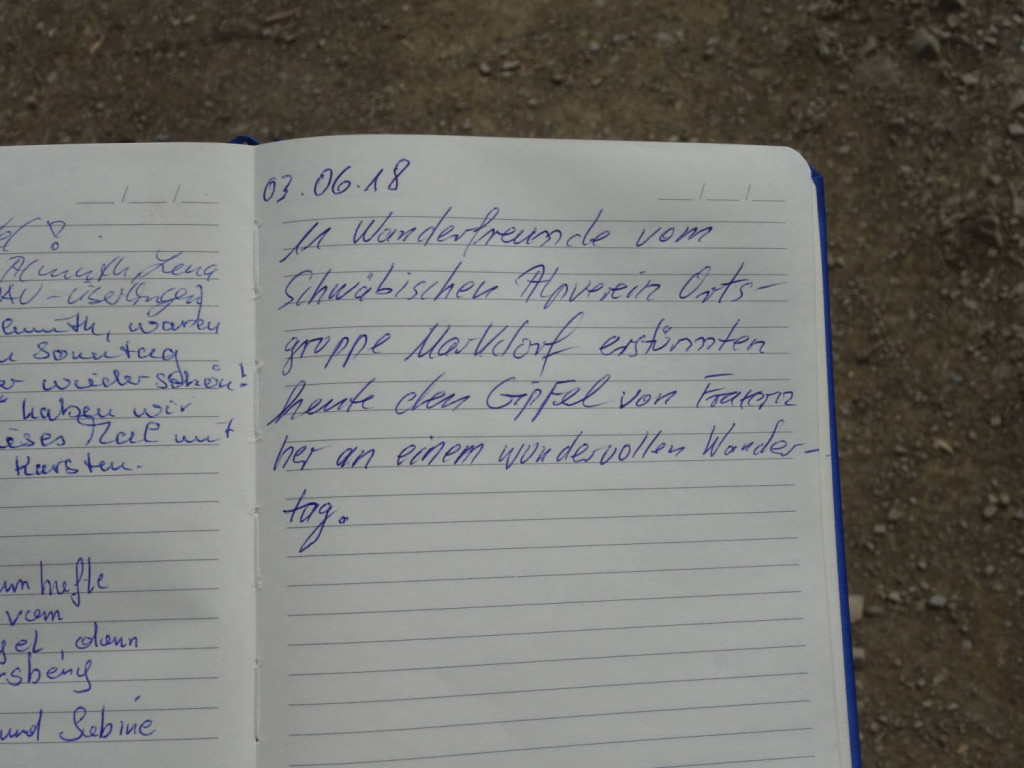 Almuth, Lena
DAV-Überlingen
waren
Sonntag
wieder schön!
haben wir
Mal mit
Karsten.
vom
dann
und Sabine
03.06.18
11 Wanderfreunde vom
Schwäbischen Alpverein Orts-
gruppe Markdorf erstürmten
heute den Gipfel von
her an einem wundervollen Wander-
tag.